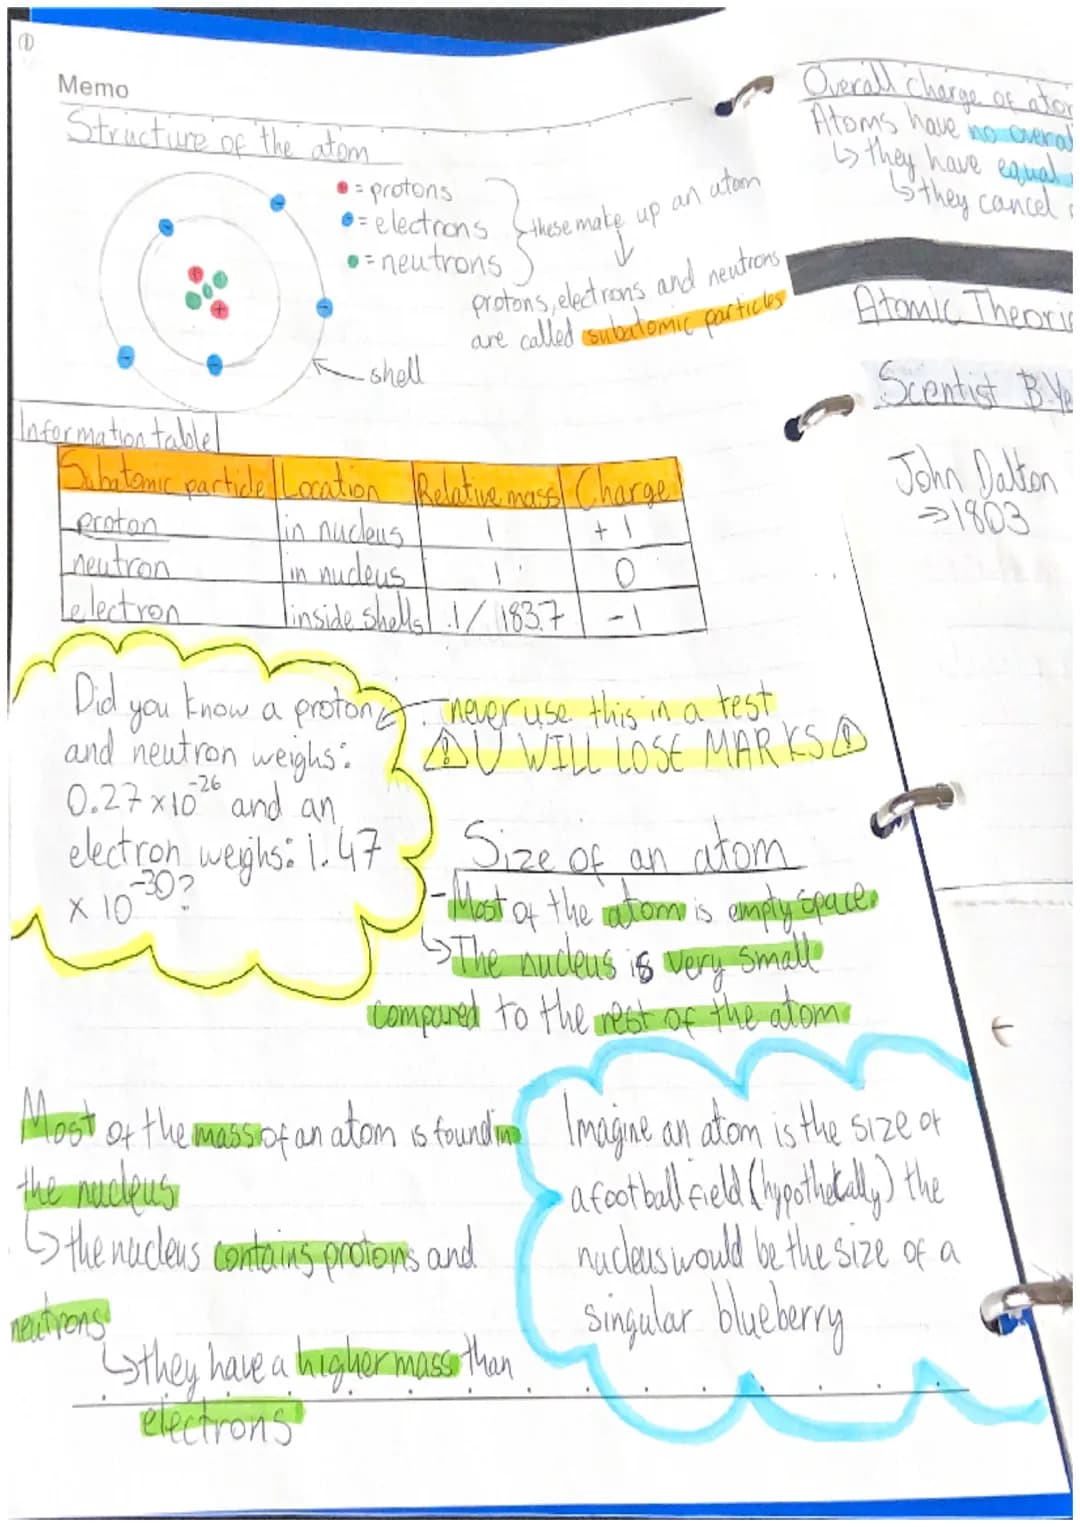 ①
Memo
Structure of the atom
= protons
= electrons
= neutrons
these make up an atom
protons, electrons and neutrons
are called subatomic particles
shell
+
+
-
-
-
-
-
Information table
Subatomic particle Location Relative mass Charge
proton in nucleus 1 +1
neutron in nucleus 1 0
electron inside shells 1/1837 -1
Did you know a proton
and neutron weighs:
0.27 x 10^-26 and an
electron weighs: 1.47
x 10^-30?
never use this in a test
⚠ U WILL LOSE MARKS ⚠
Size of an atom
- Most of the atom is empty space.
↳ The nucleus is very small
compared to the rest of the atom
Most of the mass of an atom is found in
the nucleus
↳ the nucleus contains protons and
neutrons
↳ they have a higher mass than
electrons
Imagine an atom is the size of
a football field (hypothetically) the
nucleus would be the size of a
singular blueberry
Overall charge of
Atoms have no
↳ they have equal
↳ they cancel
Atomic
Scentist
John Dalton
⇒ 1803